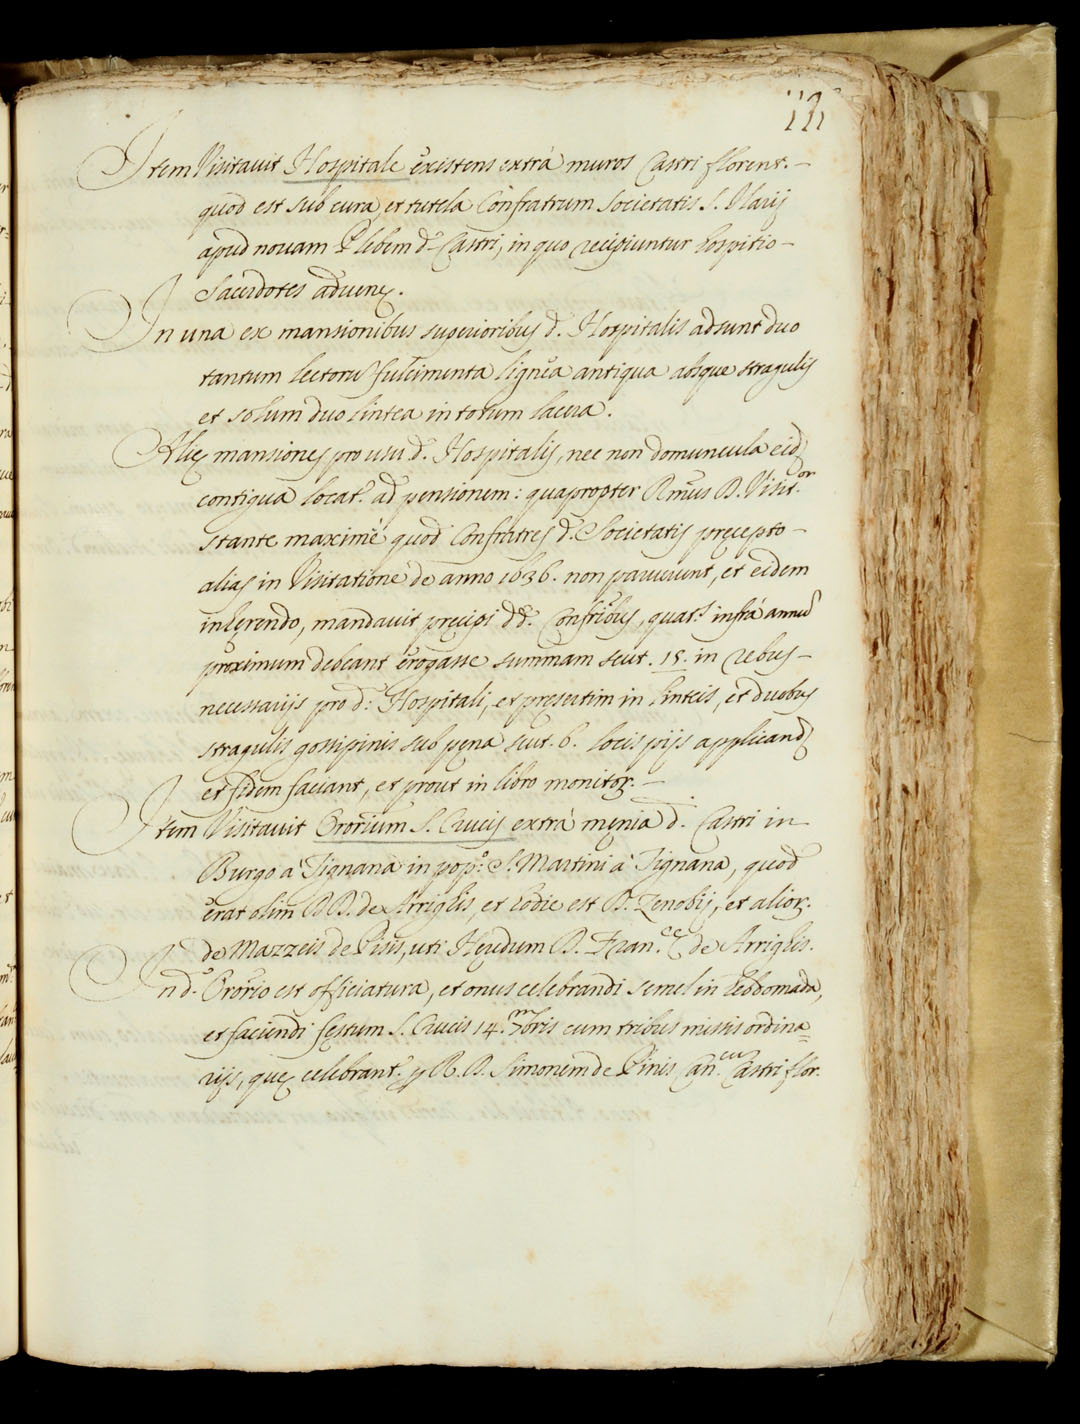 121
Item Visitauit Hospitale existens extrà muros Castri florent. –
quod est sub cura, et tutela Confratrum Societatis S. Ilarij
apud nouam Plebem d. Castri, in quo recipiuntur hospitio –
Sacerdotes aduenę.
In una ex mansionibus superioribus d. Hospitalis adsunt duo
tantum lectorũ fulcimenta lignea antiqua absque stragulis
et solum duo lintea in totum lacera.
Alię mansiones pro usu d. Hospitalis, nec non domuncula eid.
contigua locat. ad pensionem: quapropter Rmus D. Visit.or
stante maximè quod Confratres d. Societatis pręcepto –
alias in Visitatione de anno 1636. non paruerunt, et eidem
inhęrendo, mandauit pręcipi dd. Confribus, quat.s infrà annũ
proximum debeant erogasse summam scut. 15. in rebus –
necessarijs pro d: Hospitali, et pręsertim in linteis, et duobus
stragulis gossipinis sub pęna scut. 6. locis pijs applicand.
et fidem faciant, et prout in libro monitor. –
Item Visitauit Ororium S. Crucis extrà męnia d. Castri in
Burgo à Tignana in pop.º S. Martini à Tignana, quod
erat olim DD. de Arrighis, et hodie est D. Zenobij, et alior.
de Mazzeis de Pisis, uti Hęredum D. Fran.cę de Arrighis.
In d. Ororio est officiatura, et onus celebrandi semel in hebdomada,
et faciendi festum S. Crucis 14. 7mbris cum tribus missis ordina=
rijs, quę celebrant. p R. D. Simonem de Pinis Can.cum Castri flor.